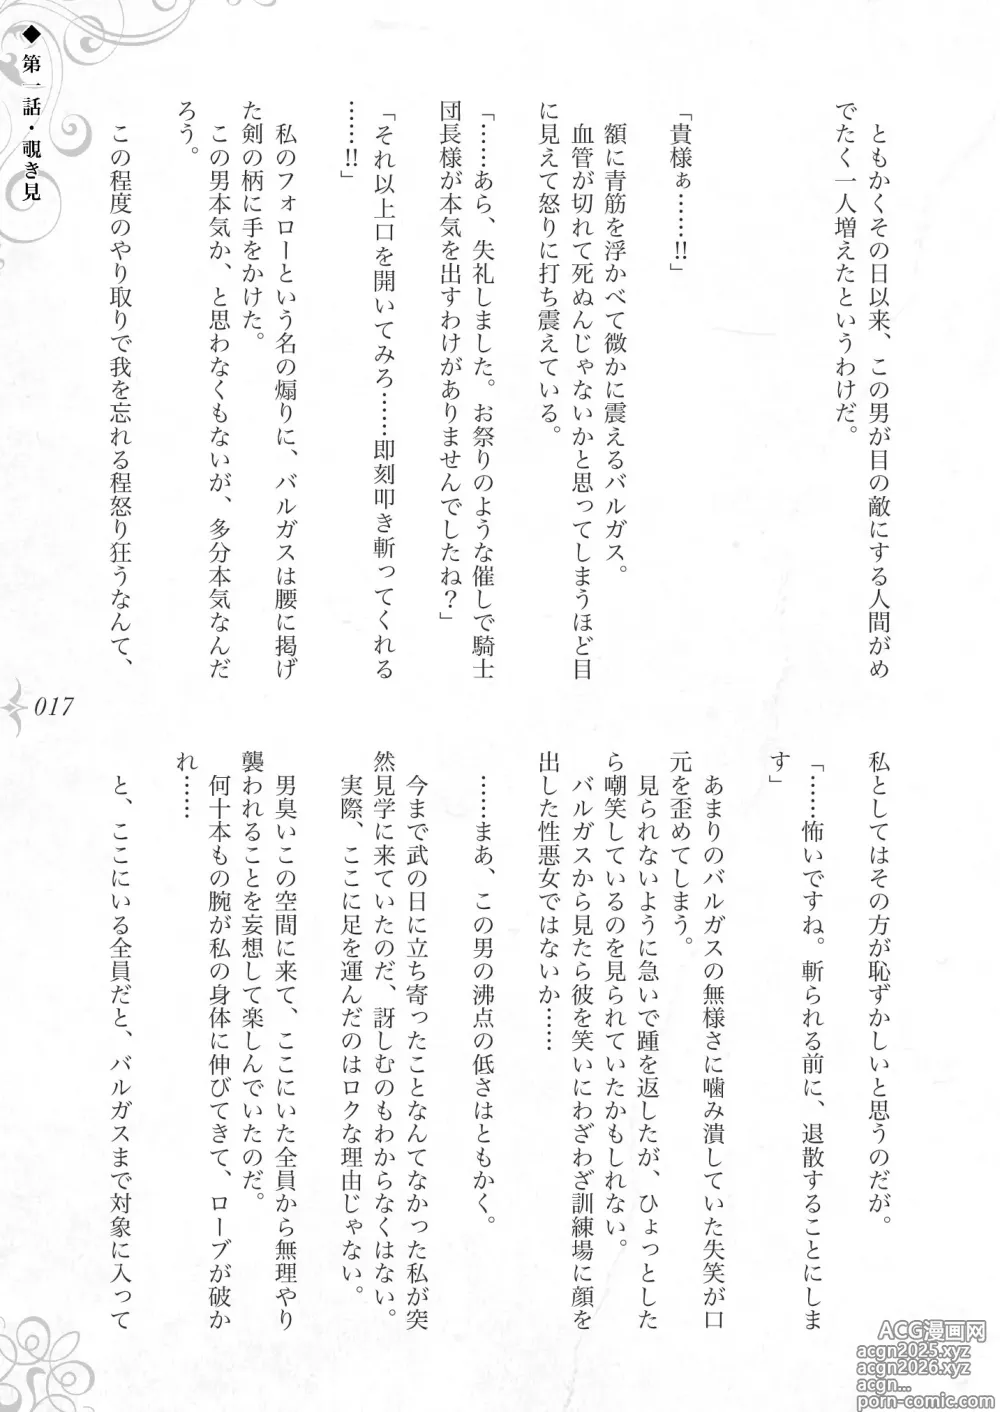 ◆ 第一話・覗き見
ともかくその日以来、この男が目の敵にする人間がめ
でたく一人増えたというわけだ。
「貴様ぁ……!!」
額に青筋を浮かべて微かに震えるバルガス。
血管が切れて死ぬんじゃないかと思ってしまうほど目
に見えて怒りに打ち震えている。
「……あら、失礼しました。お祭りのような催しで騎士
団長様が本気を出すわけがありませんでしたね？」
「それ以上口を開いてみろ……即刻叩き斬ってくれる
……!!」
私のフォローという名の煽りに、バルガスは腰に掲げ
た剣の柄に手をかけた。
この男本気か、と思わなくもないが、多分本気なんだ
ろう。
この程度のやり取りで我を忘れる程怒り狂うなんて、
私としてはその方が恥ずかしいと思うのだが。
「……怖いですね。斬られる前に、退散することにしま
す」
あまりのバルガスの無様さに噛み潰していた失笑が口
元を歪めてしまう。
見られないように急いで踵を返したが、ひょっとした
ら嘲笑しているのを見られていたかもしれない。
バルガスから見たら彼を笑いにわざわざ訓練場に顔を
出した性悪女ではないか……
……まあ、この男の沸点の低さはともかく。
今まで武の日に立ち寄ったことなんてなかった私が突
然見学に来ていたのだ、訝しむのもわからなくはない。
実際、ここに足を運んだのはロクな理由じゃない。
男臭いこの空間に来て、ここにいた全員から無理やり
襲われることを妄想して楽しんでいたのだ。
何十本もの腕が私の身体に伸びてきて、ローブが破か
れ……
と、ここにいる全員だと、バルガスまで対象に入って
017
ACG漫画网
acgn2025.xyz
acgn2026.xyz
acgn...
porn-comic.com